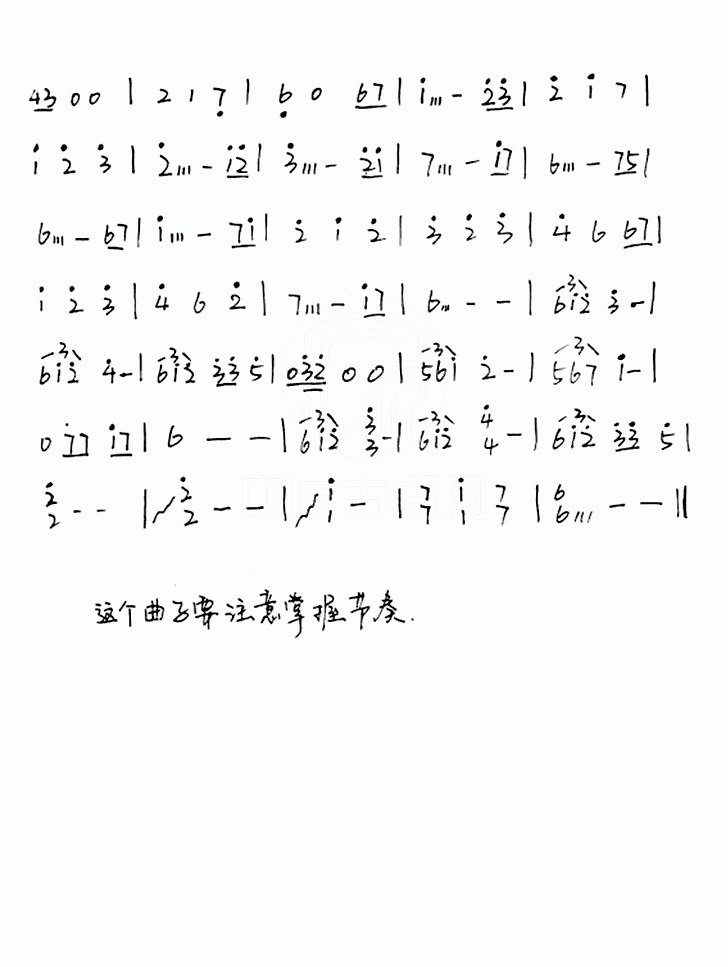 4̲3̲ 0 0 | 2 1 7̣ | 6̣ 0 6̲7̲ | i̇ /// - 2̲̇3̲̇ | 2̇ 1̇ 7 |
1̇ 2̇ 3̇ | 2̇ /// - 1̲̇2̲̇ | 3̇ /// - 2̲̇1̲̇ | 7 /// - 1̲̇7̲ | 6 /// - 7̲5̲ |
6 /// - 6̲7̲ | 1̇ /// - 7̲1̲̇ | 2̇ 1̇ 2̇ | 3̇ 2̇ 3̇ | 4̇ 6 6̲7̲ |
1̇ 2̇ 3̇ | 4̇ 6 2̇ | 7 /// - 1̲̇7̲ | 6 /// - - | 3 61̇2̇ 3̇ - |
3 61̇2̇ 4̇ - | 3 61̇2̇ 3̲̇3̲̇ 5̇ | 0̲3̲̇2̲̇ 0 0 | 3 561̇ 2̇ - | 3 567 1̇ - |
0 7̲7̲ 1̲̇7̲ | 6 - - | 3 61̇2̇ 3̇/3 - | 3 61̇2̇ 4̇/4 - | 3 61̇2̇ 3̲̇3̲̇ 5̇ |
2̇/2 - - | 2̇/2 - - | 1̇/1 - | 7/7 1̇/1 7/7 | 6/6 /// - - ‖
这个曲子要注意掌握节奏.